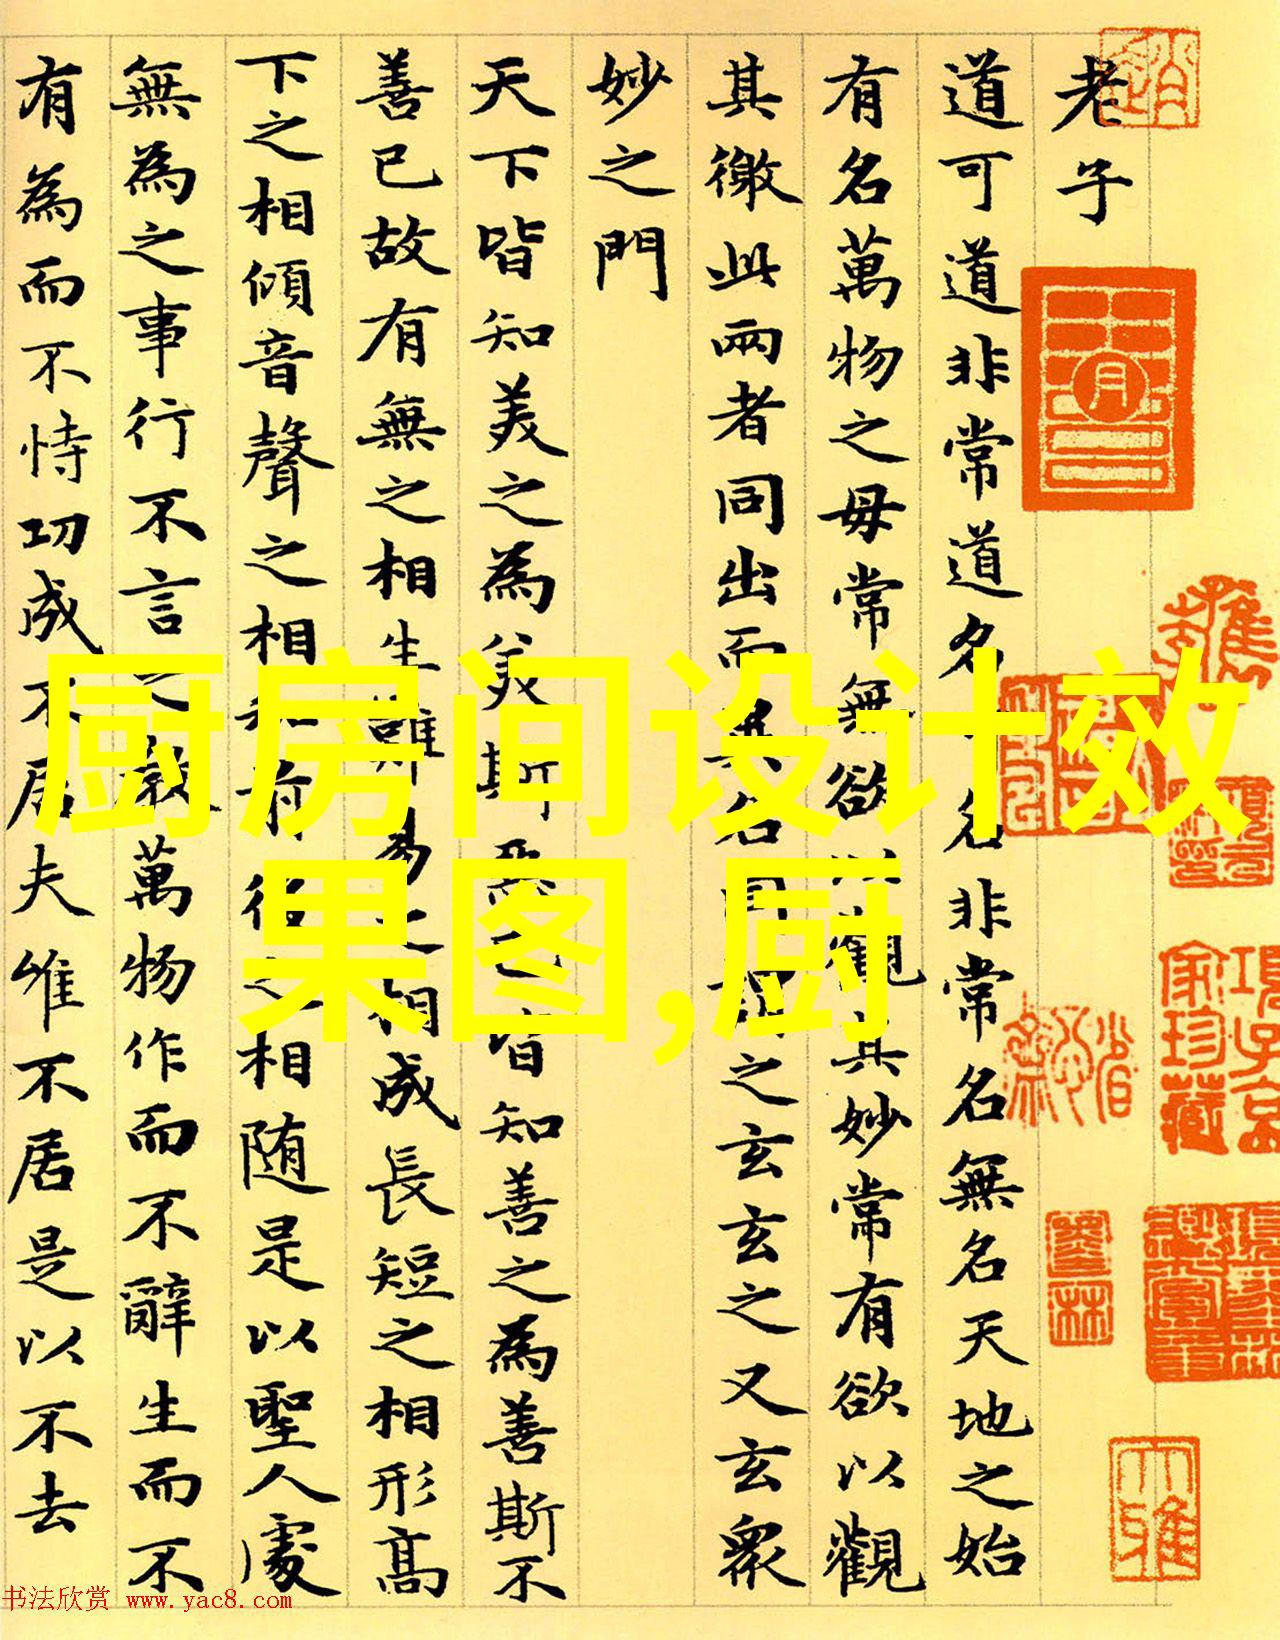 老子
道可道非常道名可名非常名無名天地之始
有名萬物之母常無欲以觀其妙常有欲以觀
其徼此兩者同出而異名同謂之玄玄之又玄衆
妙之門
天下皆知美之為美斯惡已皆知善之為善斯不
善已故有無之相生難易之相成長短之相形高
下之相傾音聲之相和前後之相随是以聖人處
無為之事行不言之教萬物作而不辭生而不
有為而不恃功成不居夫惟不居是以不去
項子京家珍藏
厨房间设计效
果图,厨
书法欣赏 www.yac8.com